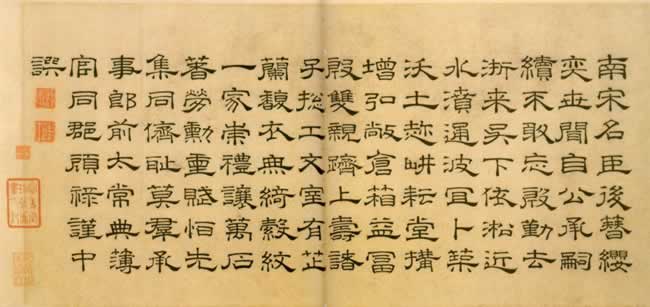 南宋名臣後簪纓
奕世聞自公承嗣
續不敢忘殷勤去
浙来吳下依淞近
水濆通波冝卜築
沃土趂畊耘堂搆
增弘敞倉箱益冨
殷雙親躋上壽諸
子捴工文室有芷
蘭馥衣無綺縠紋
一家崇禮讓萬石
著勞勳重賦怕先
集同儕耻莫羣承
事郎前太常典薄
官同郡頋禄謹中
譔